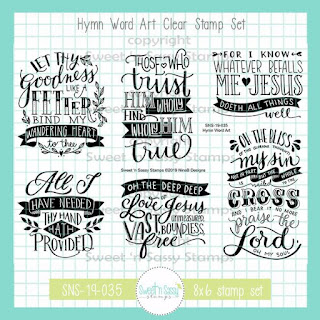 Hymn Word Art Clear Stamp Set
copyright
LET THY
Goodness
LIKE A
FETTER
BIND MY
WANDERING HEART
to thee
THOSE WHO
trust
HIM
WHOLLY
FIND
HIM
WHOLLY
true
FOR I KNOW
WHATEVER BEFALLS
ME JESUS
DOETH ALL THINGS
well
SNS-19-035
Hymn Word Art
Sweet 'n Sassy Stamps ©2019 NinaB Designs
All I
HAVE NEEDED
THY HAND
HATH
PROVIDED
OH THE DEEP DEEP
love of Jesus
VAST
UNMEASURED
BOUNDLESS
free
OH THE BLISS
my sin
NOT IN PART BUT THE WHOLE
CROSS
AND I BEAR IT NO MORE
praise the
Lord
OH MY SOUL
Sweet 'n Sassy Stamps
SNS-19-035
Sweet 'n Sassy
stamps
8x6 stamp set